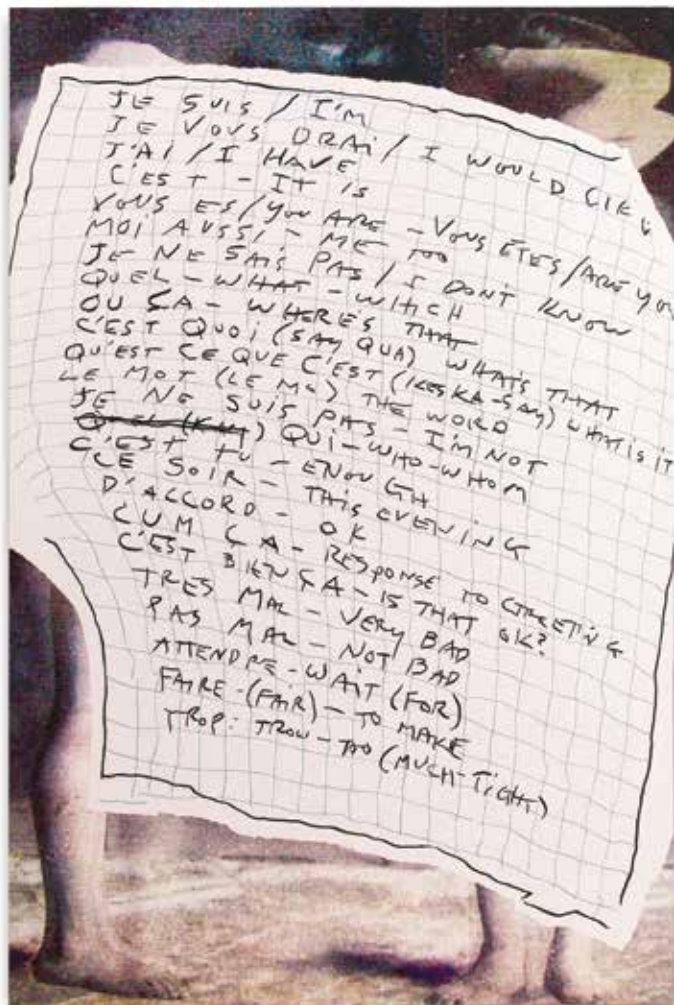 JE SUIS / I'M
JE VOUS DRAI / I WOULD LIKE
J'AI / I HAVE
C'EST - IT IS
VOUS ES / YOU ARE - VOUS ETES / ARE YOU
MOI AUSSI - ME TOO
JE NE SAIS PAS / I DON'T KNOW
QUEL - WHAT - WHICH
OU ÇA - WHERES THAT
C'EST QUOI (SAY QUA) WHATS THAT
QU'EST CE QUE C'EST (KESKA-SAY) WHAT IS IT
LE MOT (LE MO) THE WORD
JE NE SUIS PAS - I'M NOT
QUI - WHO - WHOM
C'EST TU - ENOUGH
CE SOIR - THIS EVENING
D'ACCORD - OK
CUM ÇA - RESPONSE TO GREETING
C'EST BIEN ÇA - IS THAT OK?
TRES MAL - VERY BAD
PAS MAL - NOT BAD
ATTENDRE - WAIT (FOR)
FAIRE - (FAIR) - TO MAKE
TROP: TROW - TOO (MUCH - TIGHT)